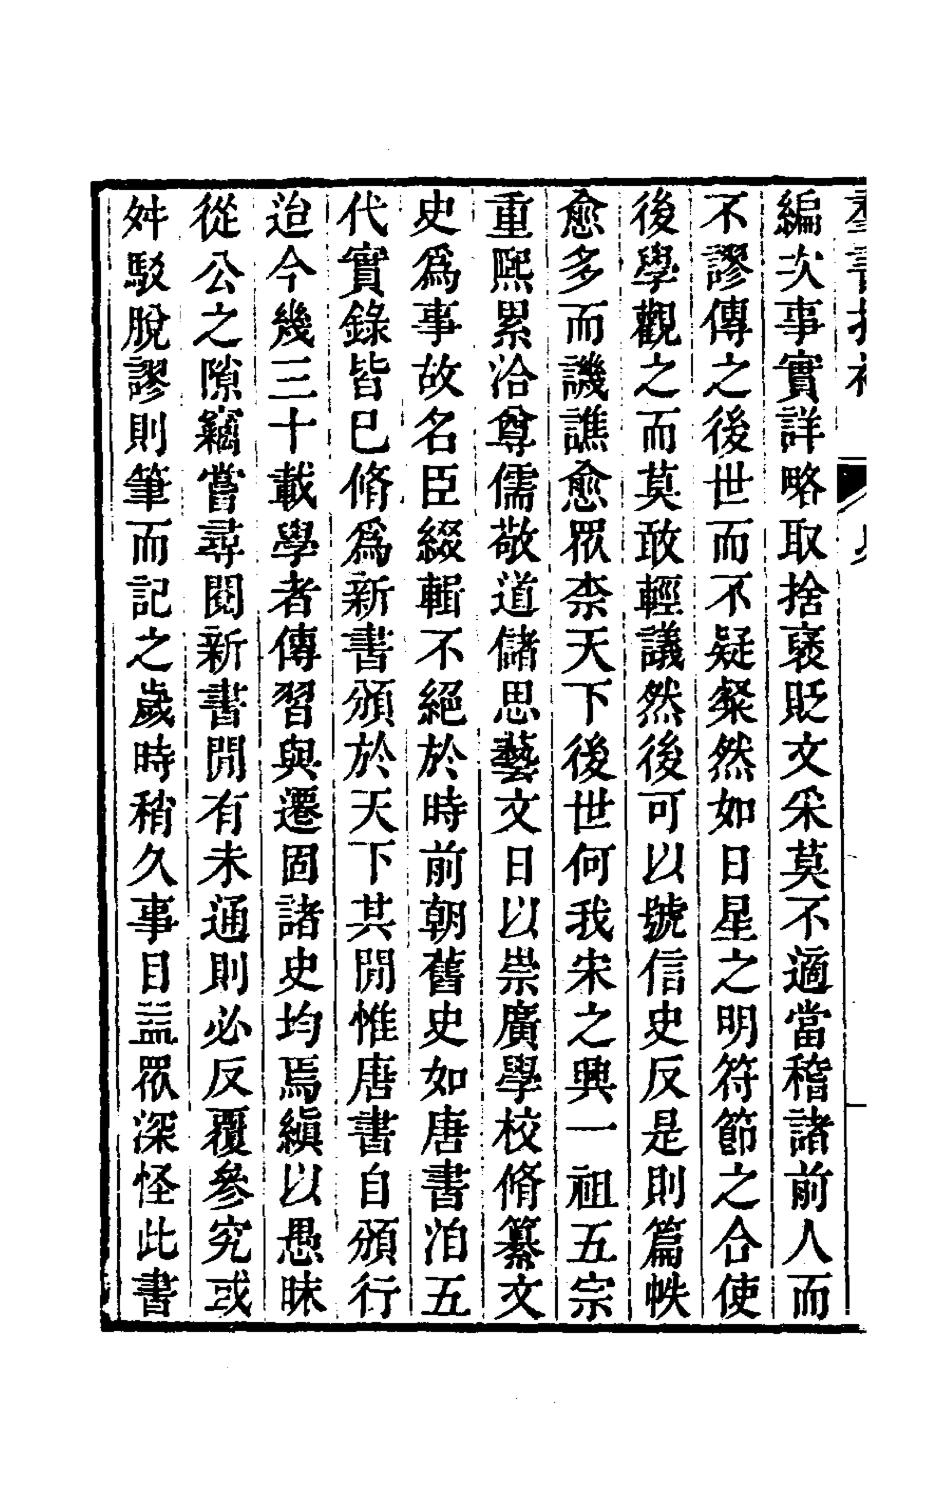 編次事實詳略取捨褒貶文采莫不適當稽諸前人而
不謬傳之後世而不疑粲然如日星之明符節之合使
後學觀之而莫敢輕議然後可以號信史反是則篇帙
愈多而譏譙愈眾柰天下後世何我宋之興一祖五宗
重熈累洽尊儒敬道儲思藝文日以崇廣學校脩纂文
史爲事故名臣綴輯不絕於時前朝舊史如唐書洎五
代實錄皆巳脩爲新書頒於天下其閒惟唐書自頒行
迨今幾三十載學者傳習與遷固諸史均焉縝以愚昧
從公之隙竊嘗尋閱新書閒有未通則必反覆參究或
舛駁脫謬則筆而記之歲時稍久事目益眾深怪此書